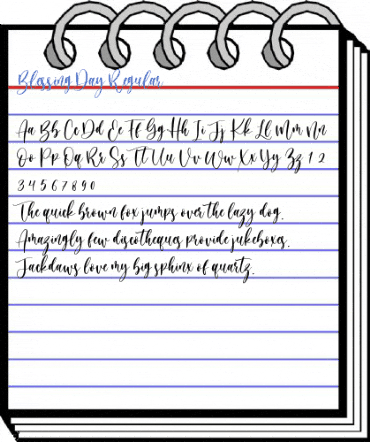 Blessing Day Regular
Aa Bb Cc Dd Ee Ff Gg Hh Ii Jj Kk Ll Mm Nn
Oo Pp Qq Rr Ss Tt Uu Vv Ww Xx Yy Zz 1 2
3 4 5 6 7 8 9 0
The quick brown fox jumps over the lazy dog.
Amazingly few discotheques provide jukeboxes.
Jackdaws love my big sphinx of quartz.